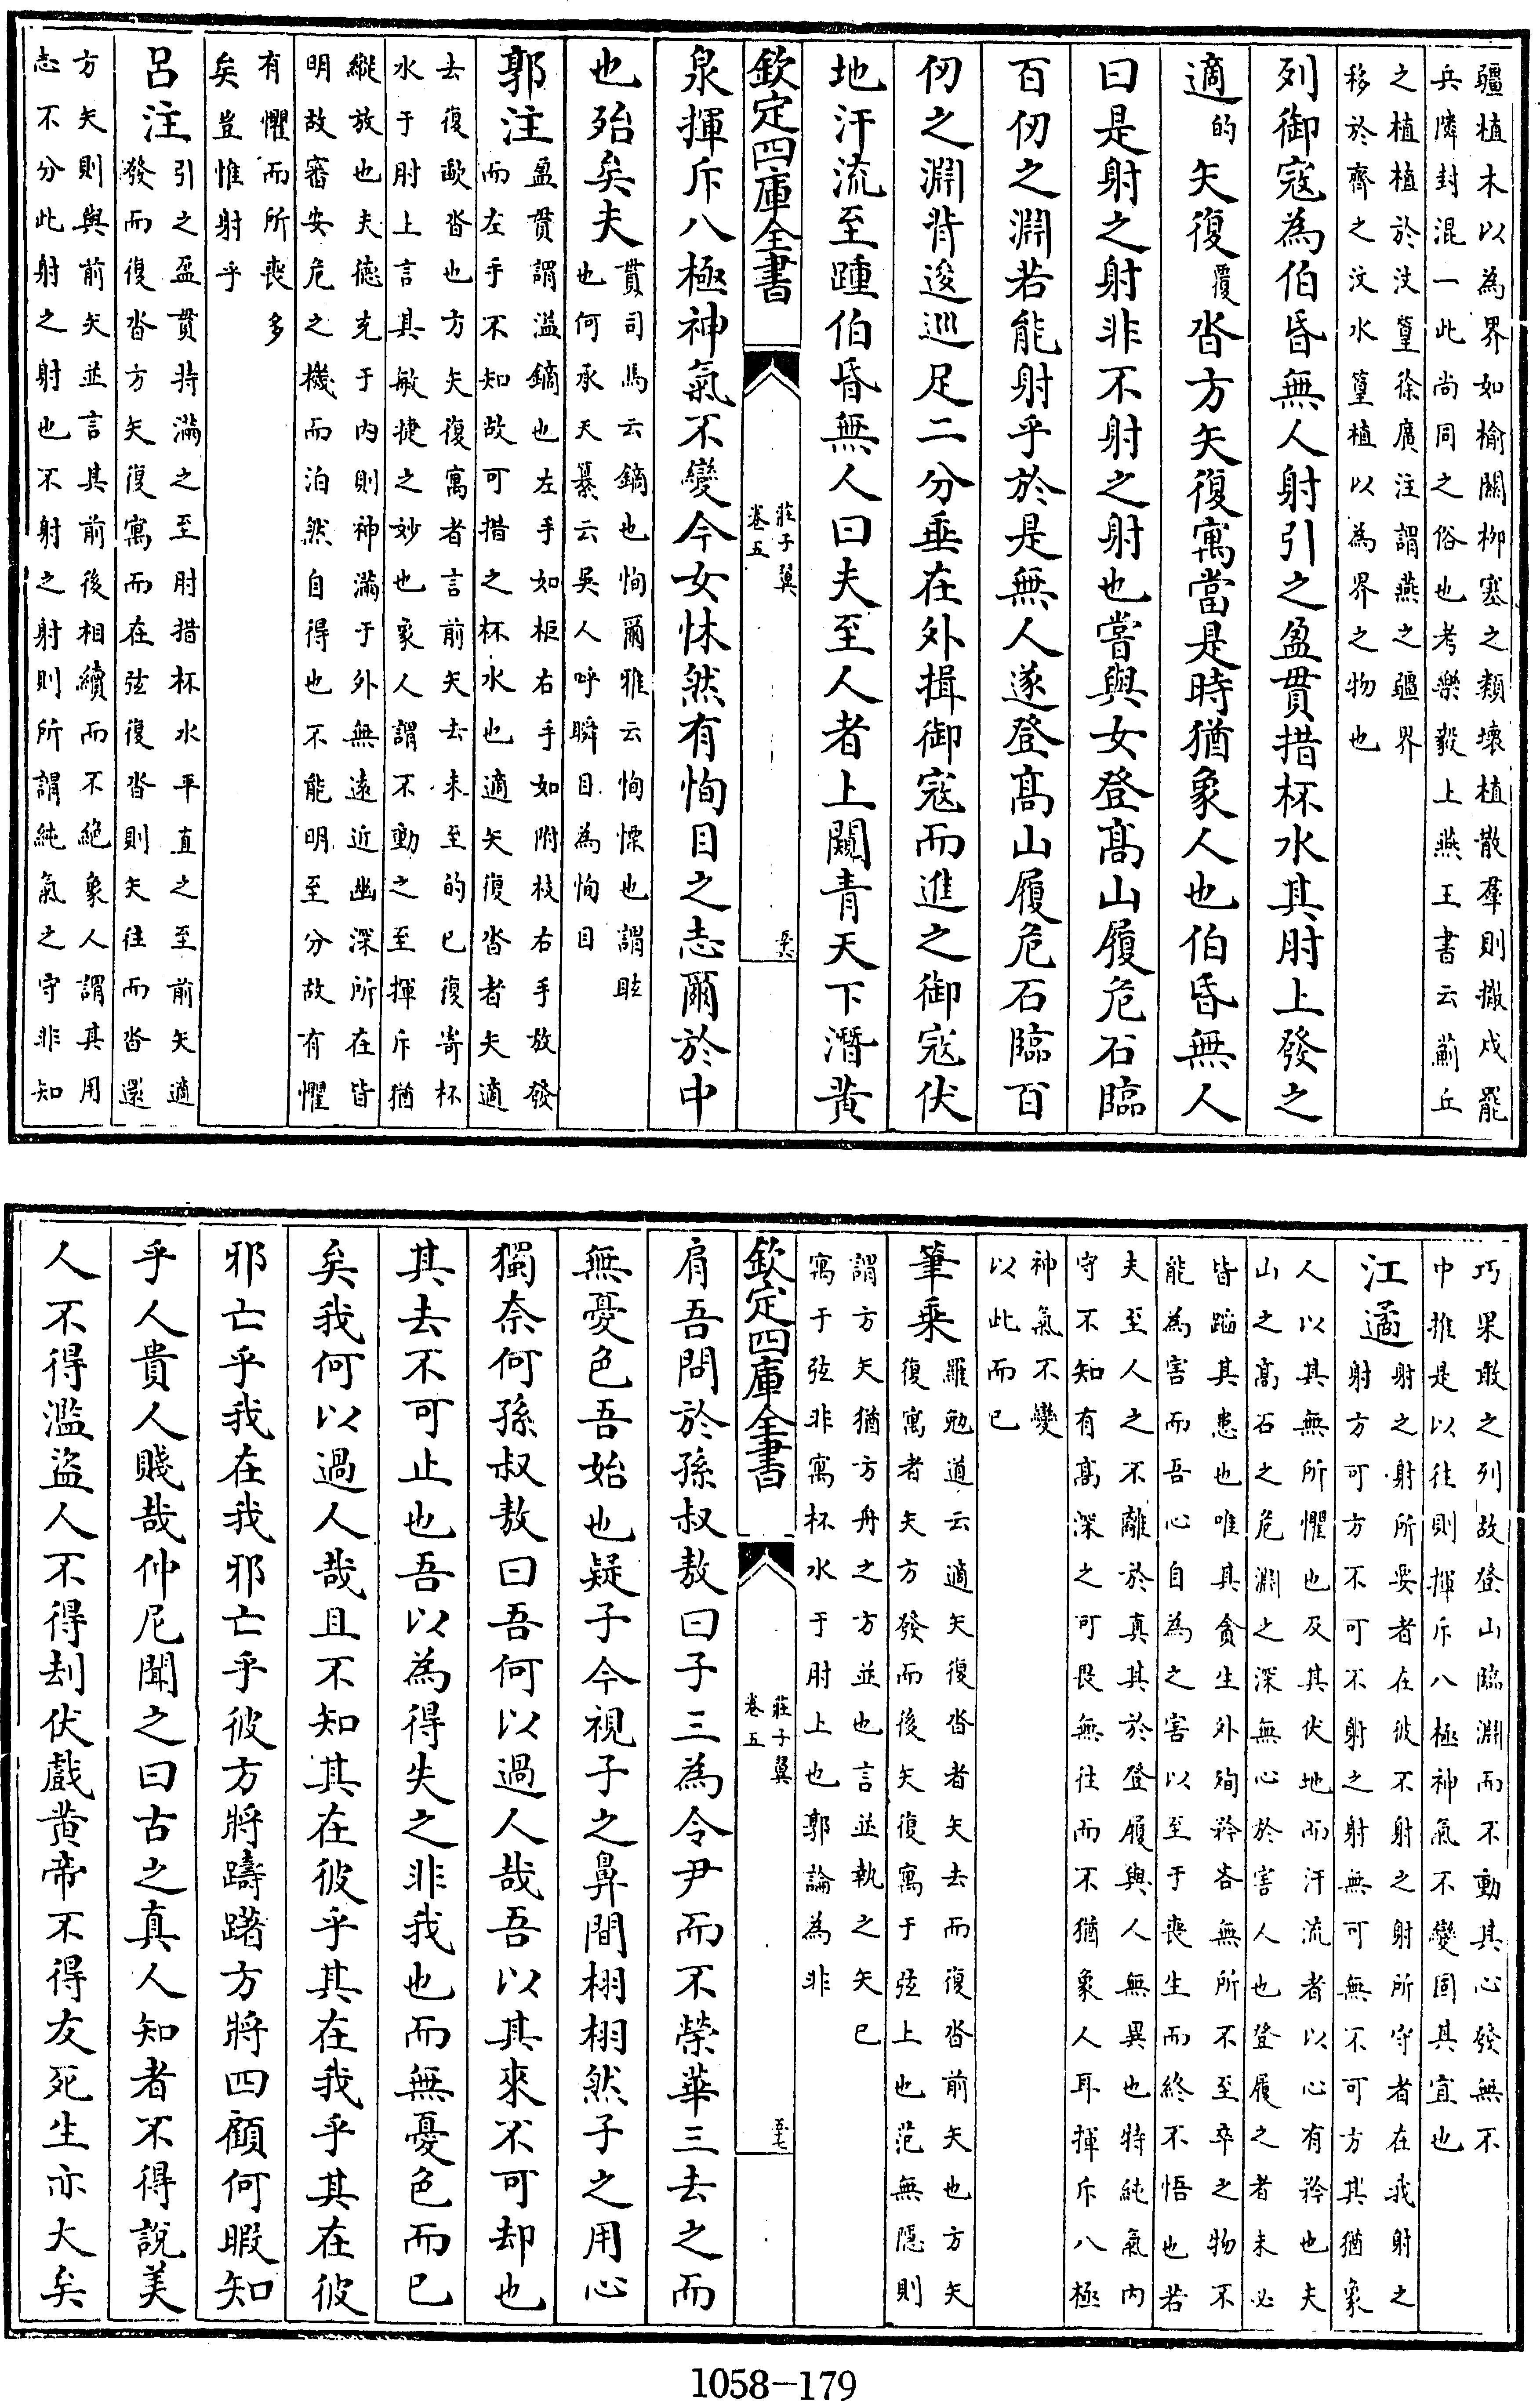 疆植木以為界如榆關柳塞之類壞植散羣則撤戍罷
兵隣封混一此尚同之俗也考樂毅上燕王書云薊丘
之植植於汶篁徐廣注謂燕之疆界
移於齊之汶水篁植以為界之物也
列御寇為伯昏無人射引之盈貫措杯水其肘上發之
適的矢復覆沓方矢復寓當是時猶象人也伯昏無人
曰是射之射非不射之射也嘗與女登髙山履危石臨
百仞之淵若能射乎於是無人遂登髙山履危石臨百
仞之淵背逡巡足二分垂在外揖御寇而進之御寇伏
地汗流至踵伯昏無人曰夫至人者上闚青天下潛黄
欽定四庫全書
莊子翼
卷五
五六
泉揮斥八極神氣不變今女怵然有恂目之志爾於中
也殆矣夫
貫司馬云鏑也恂爾雅云恂慄也謂眩
也何承天纂云吳人呼瞬目為恂目
郭注
盈貫謂溢鏑也左手如柜右手如附枝右手放發
而左手不知故可措之杯水也適矢復沓者夫適
去復歃沓也方矢復寓者言前矢去未至的已復寄杯
水于肘上言其敏捷之妙也象人謂不動之至揮斥猶
縱放也夫德充于內則神滿于外無遠近幽深所在皆
明故審安危之機而泊然自得也不能明至分故有懼
有懼而所喪多
矣豈惟射乎
呂注
引之盈貫持滿之至肘措杯水平直之至前矢適
發而復沓方矢復寓而在弦復沓則矢往而沓還
方矢則與前矢並言其前後相續而不絕象人謂其用
志不分此射之射也不射之射則所謂純氣之守非知
巧果敢之列故登山臨淵而不動其心發無不
中推是以往則揮斥八極神氣不變固其宜也
江遹
射之射所要者在彼不射之射所守者在我射之
射方可方不可不射之射無可無不可方其猶象
人以其無所懼也及其伏地而汗流者以心有矜也夫
山之髙石之危淵之深無心於害人也登履之者未必
皆蹈其患也唯其貪生外殉矜吝無所不至卒之物不
能為害而吾心自為之害以至于喪生而終不悟也若
夫至人之不離於真其於登履與人無異也特純氣內
守不知有髙深之可畏無往而不猶象人耳揮斥八極
神氣不變
以此而已
筆乘
羅勉道云適矢復沓者矢去而復沓前矢也方矢
復寓者矢方發而後矢復寓于弦上也范無隱則
謂方矢猶方舟之方並也言並執之矢已
寓于弦非寓杯水于肘上也郭論為非
欽定四庫全書
莊子翼
卷五
五七
肩吾問於孫叔敖曰子三為令尹而不榮華三去之而
無憂色吾始也疑子今視子之鼻間栩栩然子之用心
獨奈何孫叔敖曰吾何以過人哉吾以其來不可却也
其去不可止也吾以為得失之非我也而無憂色而已
矣我何以過人哉且不知其在彼乎其在我乎其在彼
邪亡乎我在我邪亡乎彼方將躊躇方將四顧何暇知
乎人貴人賤哉仲尼聞之曰古之真人知者不得說美
人不得濫盜人不得刦伏戲黄帝不得友死生亦大矣
1058-179